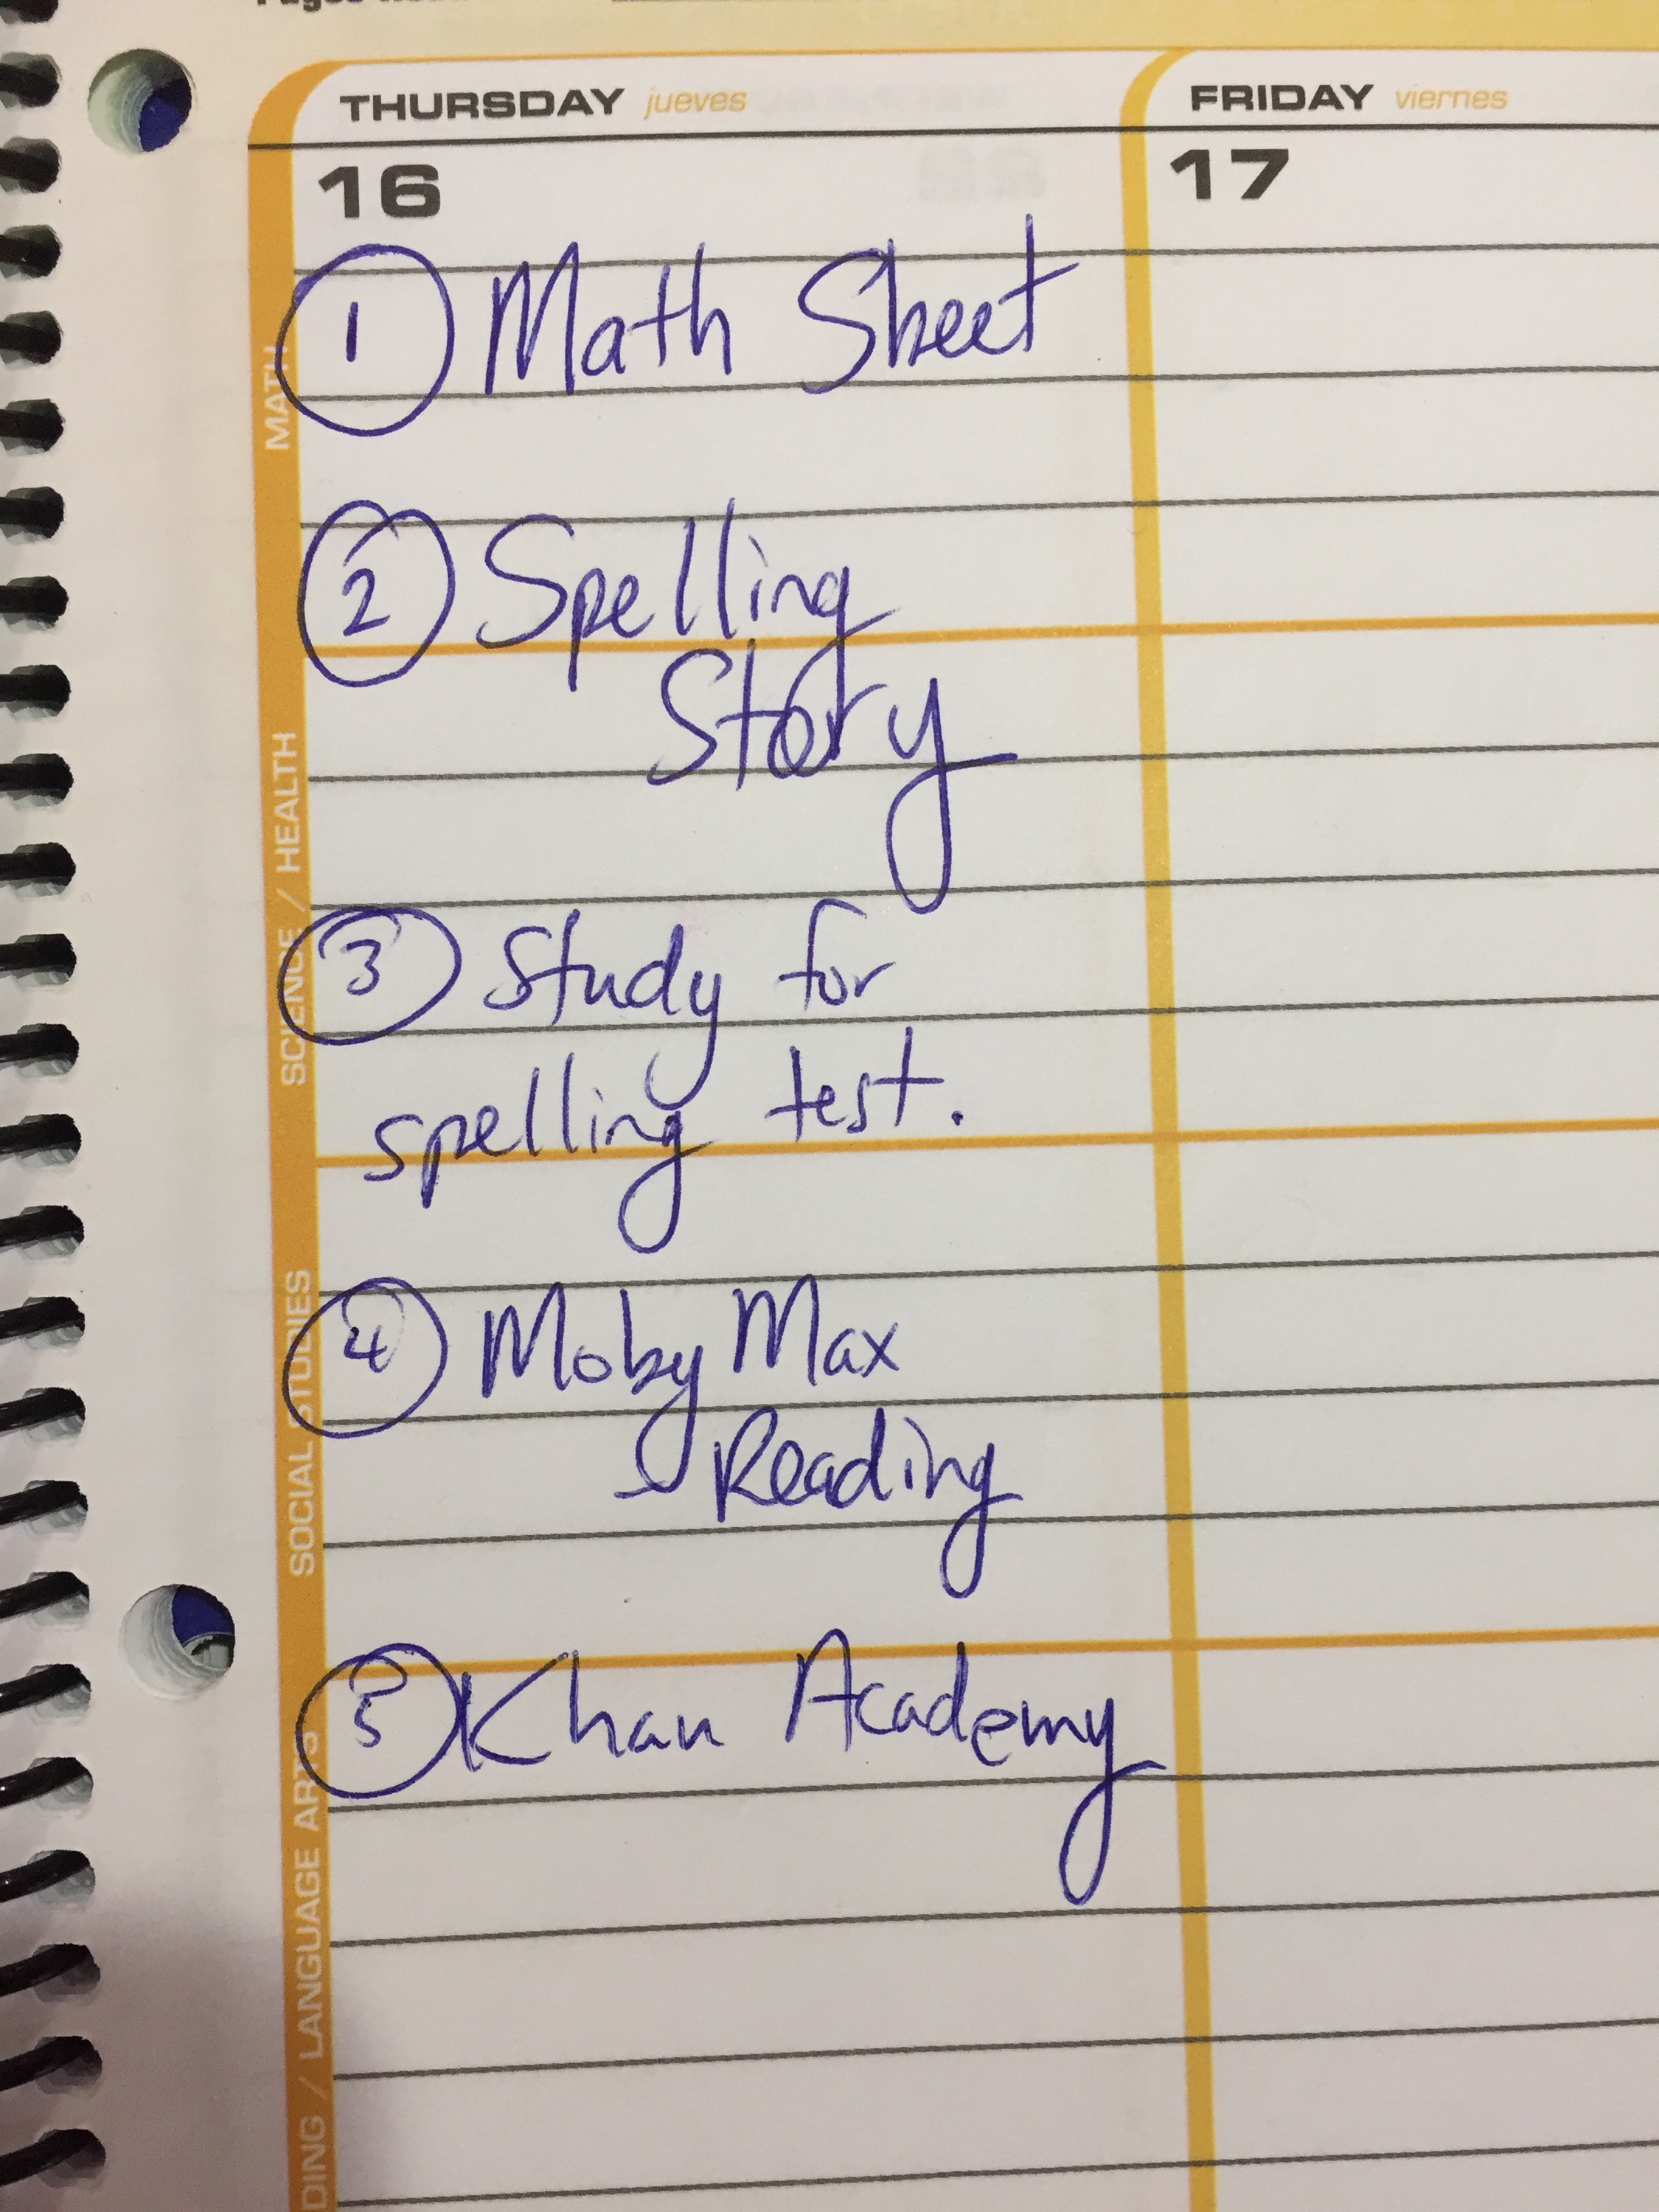 THURSDAY jueves
FRIDAY viernes
16
17
1 Math Sheet
2 Spelling
Story
3 Study for
spelling test.
4 Moby Max
Reading
5 Khan Academy
MATH
SCIENCE / HEALTH
SOCIAL STUDIES
DING / LANGUAGE ARTS